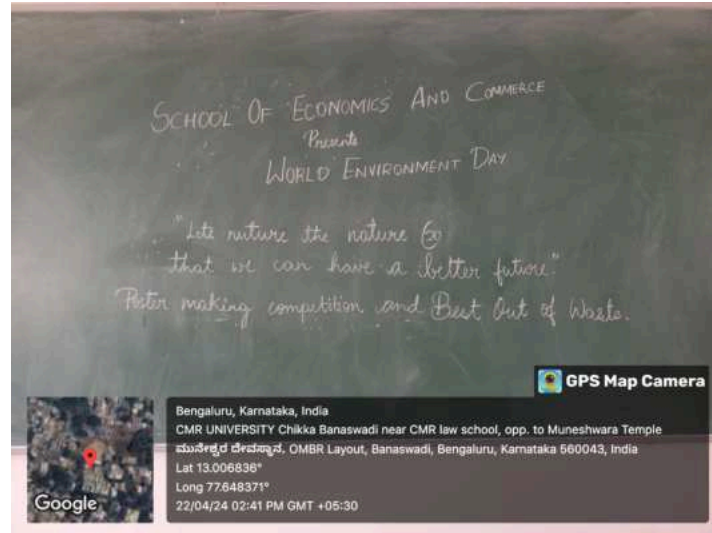 SCHOOL OF ECONOMICS AND COMMERCE
Presents
WORLD ENVIRONMENT DAY
"Lets nuture the nature so
that we can have a better future."
Poster making competition and Best Out of Waste.
GPS Map Camera
Bengaluru, Karnataka, India
CMR UNIVERSITY Chikka Banaswadi near CMR law school, opp. to Muneshwara Temple
ಮುನೇಶ್ವರ ದೇವಸ್ಥಾನ, OMBR Layout, Banaswadi, Bengaluru, Karnataka 560043, India
Lat 13.006836°
Long 77.648371°
22/04/24 02:41 PM GMT +05:30
Google